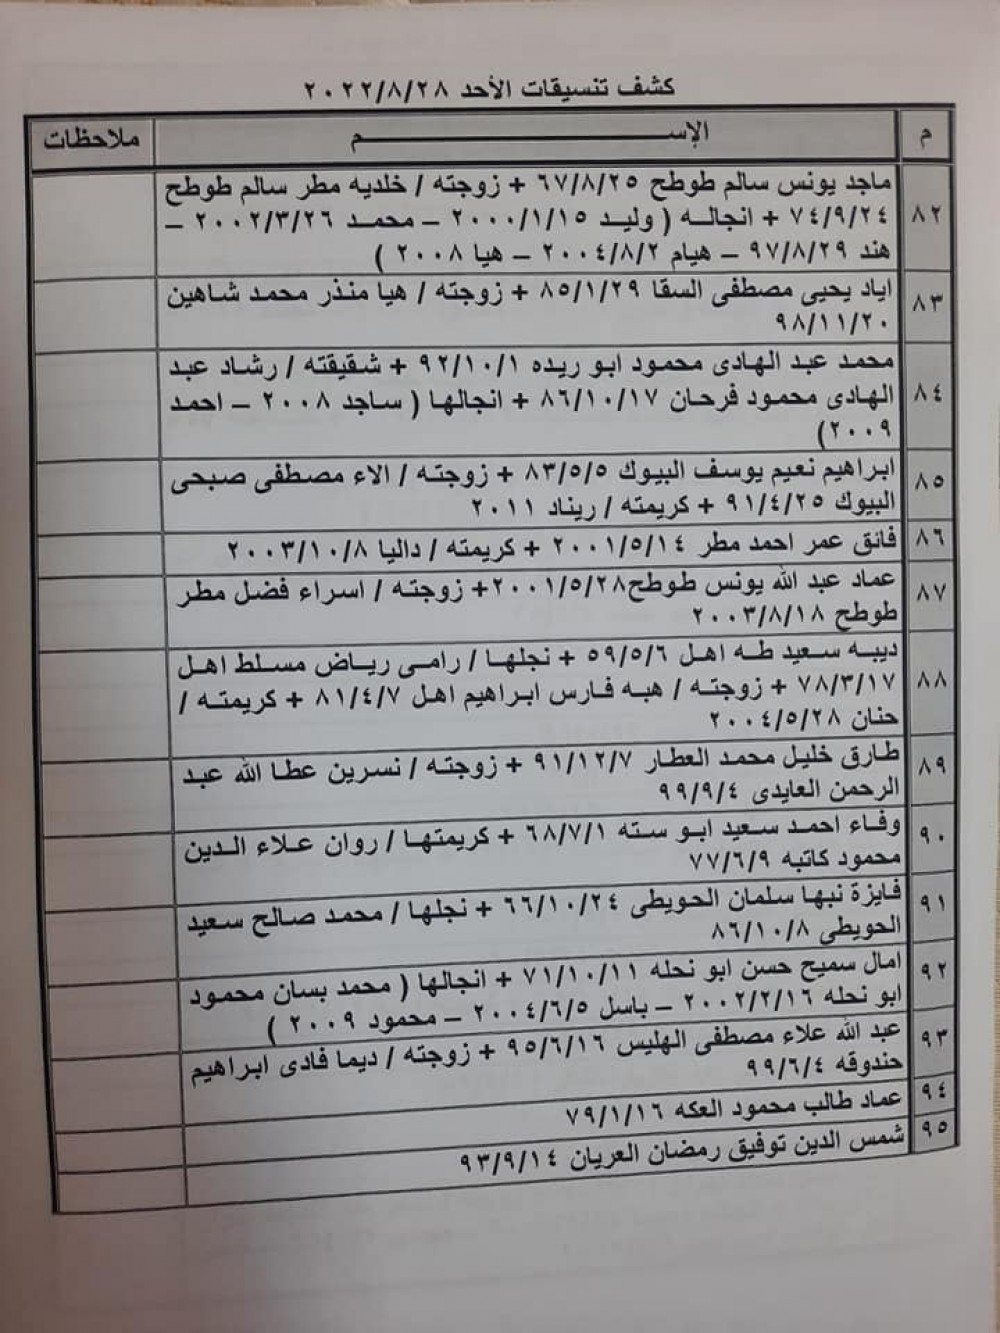 كشف تنسيقات الأحد ٢٠٢٢/٨/٢٨
م الإســــــــم ملاحظات
٨٢ ماجد يونس سالم طوطح ٦٧/٨/٢٥ + زوجته / خلديه مطر سالم طوطح
٧٤/٩/٢٤ + انجاله ( وليد ٢٠٠٠/١/١٥ – محمد ٢٠٠٢/٣/٢٦ –
هند ٩٧/٨/٢٩ – هيام ٢٠٠٤/٨/٢ – هيا ٢٠٠٨ )
٨٣ اياد يحيى مصطفى السقا ٨٥/١/٢٩ + زوجته / هيا منذر محمد شاهين
٩٨/١١/٢٠
٨٤ محمد عبد الهادى محمود ابو ريده ٩٢/١٠/١ + شقيقته / رشاد عبد
الهادى محمود فرحان ٨٦/١٠/١٧ + انجالها ( ساجد ٢٠٠٨ – احمد
٢٠٠٩)
٨٥ ابراهيم نعيم يوسف البيوك ٨٣/٥/٥ + زوجته / الاء مصطفى صبحى
البيوك ٩١/٤/٢٥ + كريمته / ريناد ٢٠١١
٨٦ فائق عمر احمد مطر ٢٠٠١/٥/١٤ + كريمته / داليا ٢٠٠٣/١٠/٨
٨٧ عماد عبد الله يونس طوطح٢٠٠١/٥/٢٨+ زوجته / اسراء فضل مطر
طوطح ٢٠٠٣/٨/١٨
٨٨ ديبه سعيد طه اهل ٥٩/٥/٦ + نجلها / رامى رياض مسلط اهل
٧٨/٣/١٧ + زوجته / هبه فارس ابراهيم اهل ٨١/٤/٧ + كريمته /
حنان ٢٠٠٤/٥/٢٨
٨٩ طارق خليل محمد العطار ٩١/١٢/٧ + زوجته / نسرين عطا الله عبد
الرحمن العايدى ٩٩/٩/٤
٩٠ وفاء احمد سعيد ابو سته ٦٨/٧/١ + كريمتها / روان علاء الدين
محمود كاتبه ٧٧/٦/٩
٩١ فايزة نبها سلمان الحويطى ٦٦/١٠/٢٤ + نجلها / محمد صالح سعيد
الحويطى ٨٦/١٠/٨
٩٢ امال سميح حسن ابو نحله ٧١/١٠/١١ + انجالها ( محمد بسان محمود
ابو نحله ٢٠٠٢/٢/١٦ – باسل ٢٠٠٤/٦/٥ – محمود ٢٠٠٩ )
٩٣ عبد الله علاء مصطفى الهليس ٩٥/٦/١٦ + زوجته / ديما فادى ابراهيم
حندوقه ٩٩/٦/٤
٩٤ عماد طالب محمود العكه ٧٩/١/١٦
٩٥ شمس الدين توفيق رمضان العريان ٩٣/٩/١٤